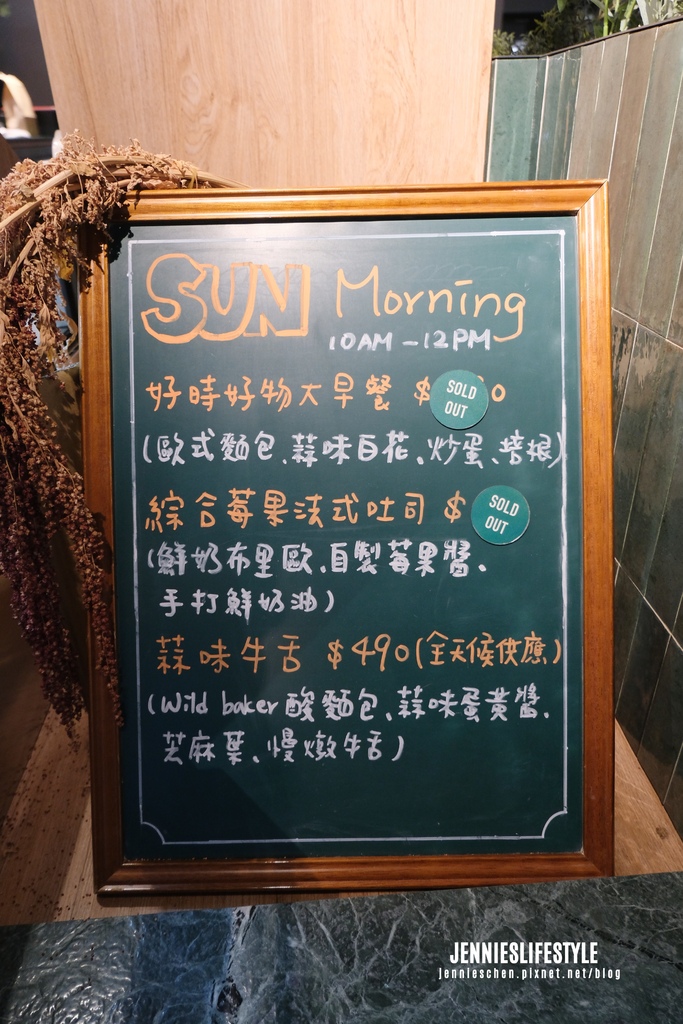 SUN Morning
10AM - 12PM
好時好物大早餐 $ 0
SOLD
OUT
(歐式麵包、蒜味白花、炒蛋、培根)
綜合莓果法式吐司 $
SOLD
OUT
(鮮奶布里歐、自製莓果醬、
手打鮮奶油)
蒜味牛舌 $490(全天候供應)
(Wild baker 酸麵包、蒜味蛋黃醬、
芝麻葉、慢燉牛舌)
JENNIESLIFESTYLE
jennieschen.pixnet.net/blog